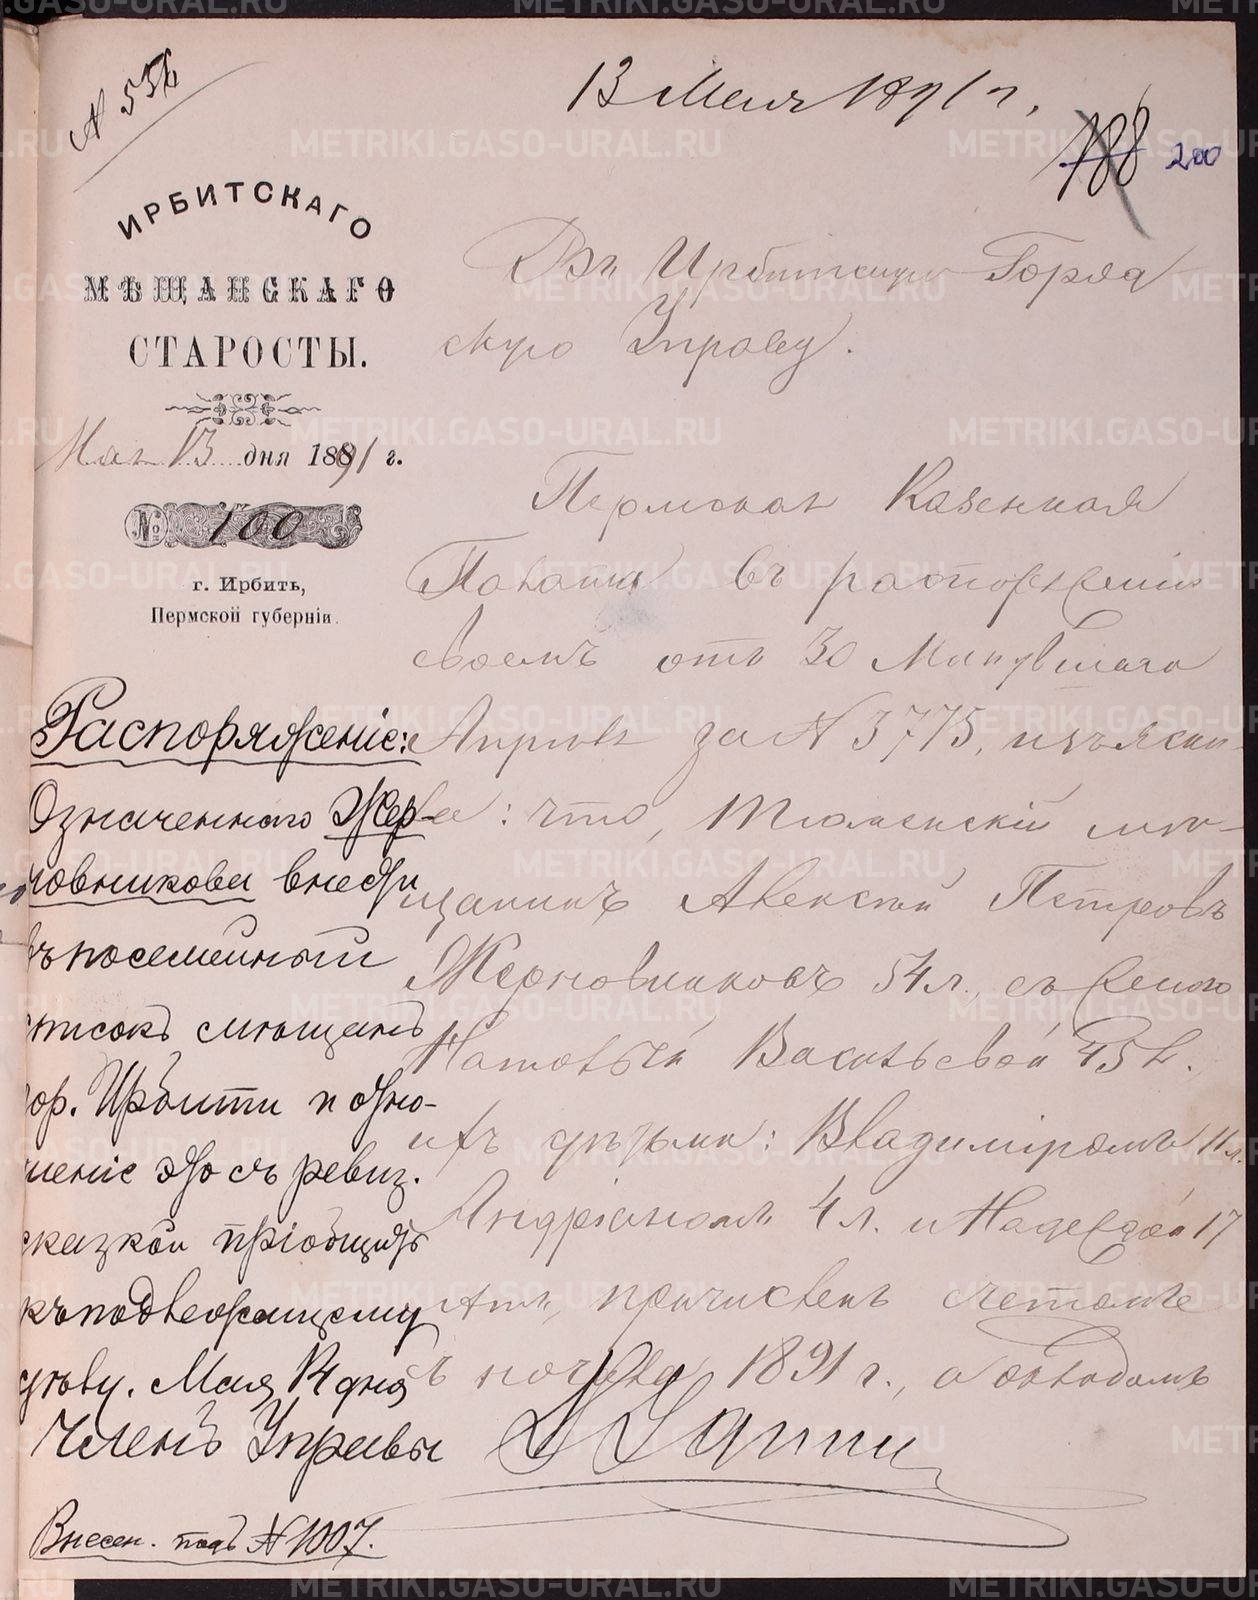 № 556
13 Мая 1891 г.
188 200
ИРБИТСКАГО
МѢЩАНСКАГО
СТАРОСТЫ.
Мая 13 дня 1891 г.
№ 100
г. Ирбить,
Пермской губерніи.
Въ Ирбитскую Городс
скую Управу.
Пермская Казенная
Палата въ распоряженіи
своемъ отъ 30 Минувшаго
Апрѣля за № 3775, изъясни-
ла: что, Тюменскій мѣ-
щанинъ Алексѣй Петровъ
Жерновниковъ 54 л., съ женою
Васильевой 45 л.,
ихъ дѣтьми: Владиміромъ 11 л.
Андріаномъ 4 л. и Надеждой 17
лѣтъ, причисленъ счетомъ
съ начала 1891 г., а окладомъ
Распоряженіе:
Означеннаго Жер-
новникова внести
въ посемейный
списокъ мѣщанъ
гор. Ирбити и отно-
шеніе это съ ревиз.
сказкой пріобщить
къ подлежащему
дѣлу. Мая 14 дня
Членъ Управы
Внесен. подъ № 1007.
METRIKI.GASO-URAL.RU